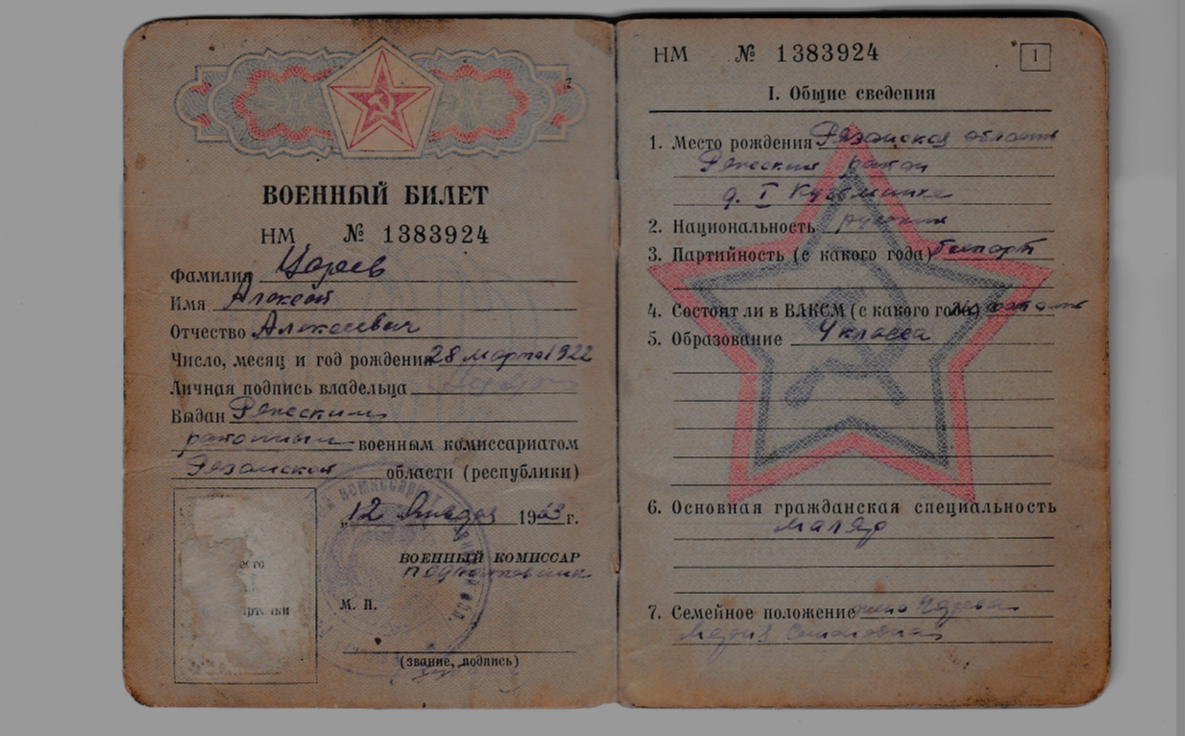 ВОЕННЫЙ БИЛЕТ
НМ № 1383924
Фамилия Царев
Имя Алексей
Отчество Алексеевич
Число, месяц и год рождения 28 марта 1922
Личная подпись владельца
Выдан Ряжским
районным военным комиссариатом
Рязанской области (республики)
12 января 1963 г.
ВОЕННЫЙ КОМИССАР
подполковник
М. П.
(звание, подпись)
НМ № 1383924
1
I. Общие сведения
1. Место рождения Рязанская область
район
д. I
2. Национальность русский
3. Партийность (с какого года) беспарт
4. Состоит ли в ВЛКСМ (с какого года)
5. Образование 4 класса
6. Основная гражданская специальность
маляр
7. Семейное положение жена Царева
Мария